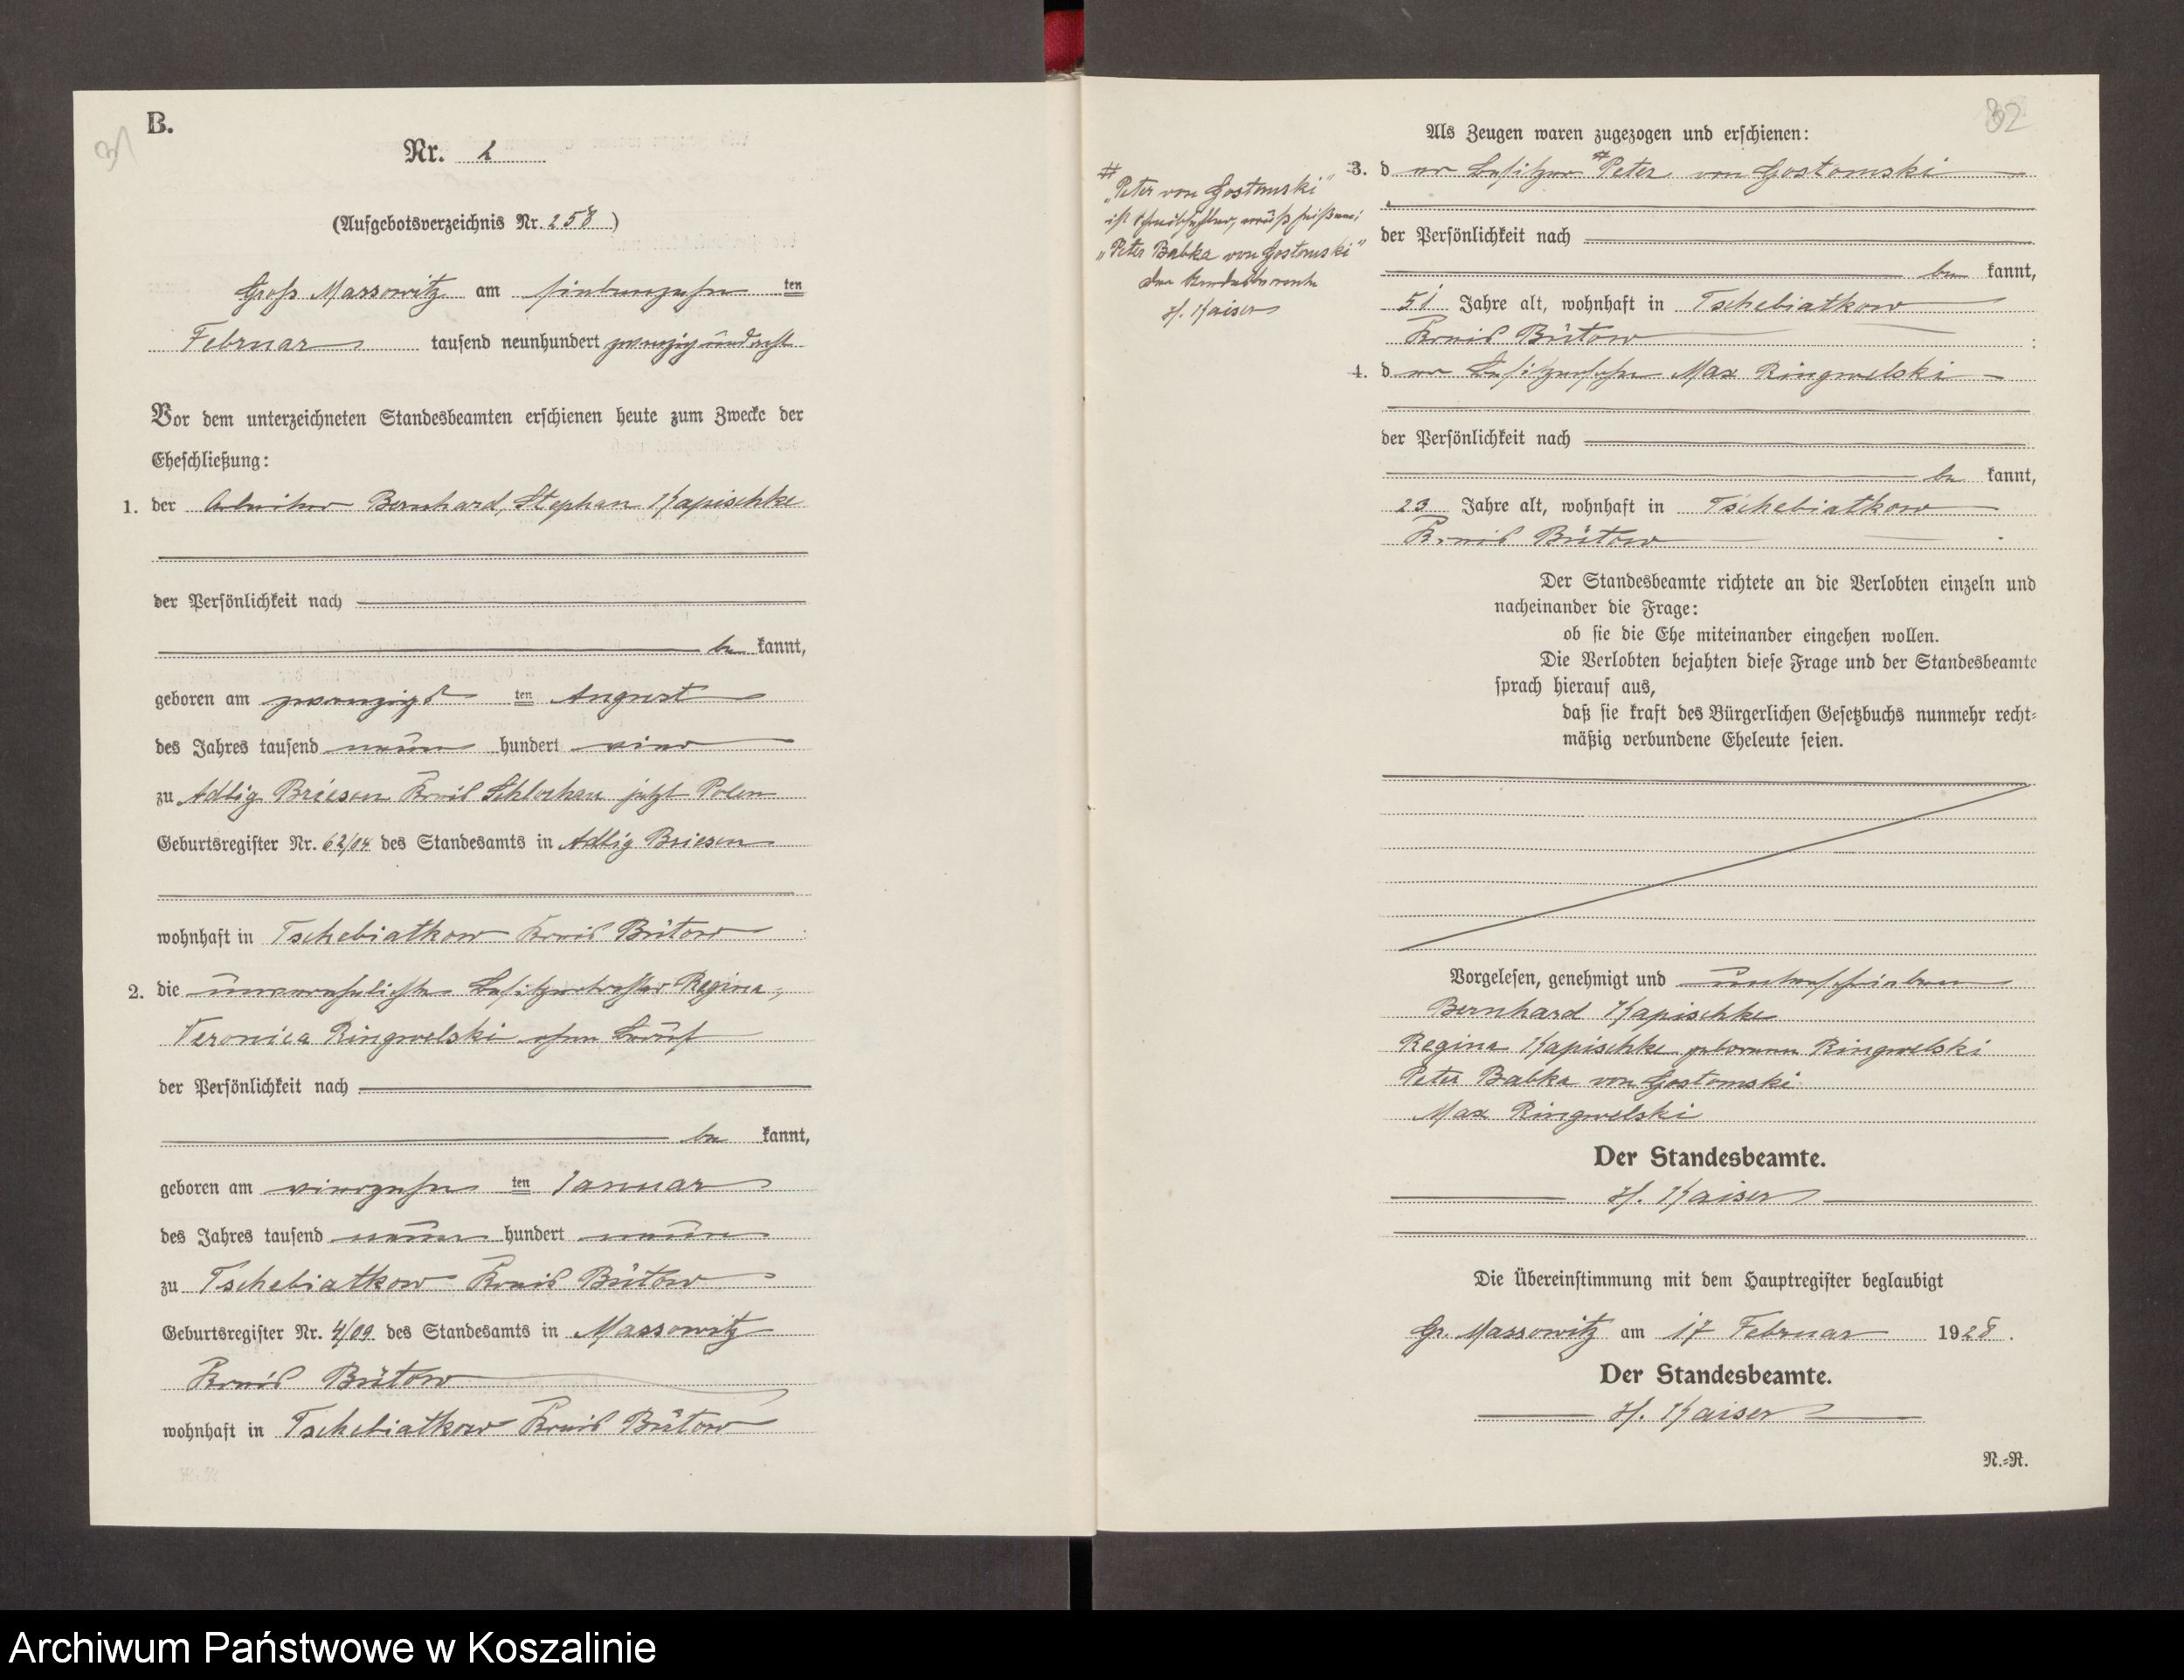 31
B.
Nr. 2
(Aufgebotsverzeichnis Nr. 258)
Groß Massowitz am siebenzehn ten
Februar tausend neunhundert zwanzig und acht
Vor dem unterzeichneten Standesbeamten erschienen heute zum Zwecke der
Eheschließung:
1. der Arbeiter Bernhard, Stephan Kapischke
der Persönlichkeit nach
be kannt,
geboren am zwanzigst ten August
des Jahres tausend neun hundert vier
zu Adlig Briesen Kreis Schlochau jetzt Polen
Geburtsregister Nr. 62/04 des Standesamts in Adlig Briesen
wohnhaft in Tschebiatkow Kreis Bütow
2. die unverehelichte Besitzertochter Regina,
Veronica Ringwelski ohne Beruf
der Persönlichkeit nach
be kannt,
geboren am vierzehn ten Januar
des Jahres tausend neun hundert neun
zu Tschebiatkow Kreis Bütow
Geburtsregister Nr. 4/09 des Standesamts in Massowitz
Kreis Bütow
wohnhaft in Tschebiatkow Kreis Bütow
32
Als Zeugen waren zugezogen und erschienen:
3. d er Besitzer # Peter von Gostomski
der Persönlichkeit nach
be kannt,
51 Jahre alt, wohnhaft in Tschebiatkow
Kreis Bütow
4. d er Besitzersohn Max Ringwelski
der Persönlichkeit nach
be kannt,
23 Jahre alt, wohnhaft in Tschebiatkow
Kreis Bütow
#
„Peter von Gostomski"
ist Schreibfehler, muß heißen:
„Peter Babka von Gostomski"
Der Standesbeamte
H. Kaiser
Der Standesbeamte richtete an die Verlobten einzeln und
nacheinander die Frage:
ob sie die Ehe miteinander eingehen wollen.
Die Verlobten bejahten diese Frage und der Standesbeamte
sprach hierauf aus,
daß sie kraft des Bürgerlichen Gesetzbuchs nunmehr recht-
mäßig verbundene Eheleute seien.
Vorgelesen, genehmigt und unterschrieben
Bernhard Kapischke
Regina Kapischke geborene Ringwelski
Peter Babka von Gostomski
Max Ringwelski
Der Standesbeamte.
H. Kaiser
Die Übereinstimmung mit dem Hauptregister beglaubigt
Gr. Massowitz am 17 Februar 1928.
Der Standesbeamte.
H. Kaiser
N.-R.
Archiwum Państwowe w Koszalinie